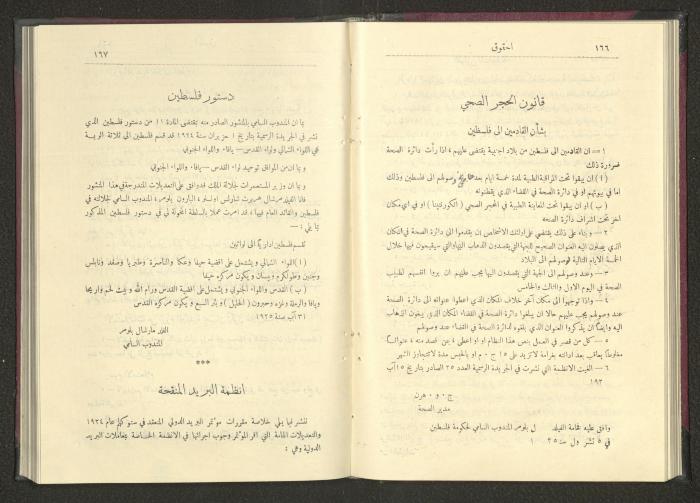 ١٦٦
الحقوق
قانون الحجر الصحي
بشأن القادمين الى فلسطين
١ – ان القادمين الى فلسطين من بلاد اجنبية يقتضى عليهم اذا رأت دائرة الصحة
ضرورة ذلك
( ٤ ) ان يبقوا تحت المراقبة الطبية لمدة خمسة ايام بعد وصولهم الى فلسطين وذلك
اما في بيوتهم او في دائرة الصحة في القضاء الذي يقطنونه
( ب ) او ان يبقوا تحت المعاينة الطبية في المحجر الصحي ( الكورنتينا ) او في اي مكان
آخر تحت اشراف دائرة الصحة
٢ – وبناء على ذلك يقتضي على اولئك الاشخاص ان يقدموا الى دائرة الصحة في المكان
الذي يصلون اليه العنوان الصحيح للجهة التي يقصدون الذهاب اليها والتي سيقيمون فيها خلال
الخمسة الايام التالية لوصولهم الى البلاد
٣ – وعند وصولهم الى الجهة التي يقصدون اليها يجب عليهم ان يروا انفسهم لطبيب
الصحة في اليوم الاول والثالث والخامس
٤ – واذا توجهوا الى مكان آخر خلاف المكان الذي اعطوا عنوانه الى دائرة الصحة
عند وصولهم يجب عليهم حالا ان يبلغوا دائرة الصحة في القضاء المكان الذي يبغون الذهاب
اليه وايضاً ان يذكروا العنوان الذي بلغوه لدائرة الصحة في القضاء عند وصولهم
٥ – كل من قصر في العمل بنص هذا النظام او اعطى عن قصد منه عنواناً
مغلوطاً يعاقب بعد ادانته بغرامة لا تزيد على ١٥ ج ٠ م او بالحبس مدة لا تتجاوز الشهر
٦ – الغيت الانظمة التي نشرت في الجريدة الرسمية العدد ٢٥ الصادر بتاريخ ١٥ آب
١٩٢
ج ٠ و ٠ هرن
مدير الصحة
وافق عليه فخامة الفيلد ل بلومر المندوب السامي لحكومة فلسطين
في ٥ تشر ول سنة ٢٥ ١
١٦٧
دستور فلسطين
بما ان المندوب السامي بالمنشور الصادر منه بمقتضى المادة ١١ من دستور فلسطين الذي
نشر في الجريدة الرسمية بتاريخ ١ حزيران سنة ١٩٢٤ قد قسم فلسطين الى ثلاثة الوية
هي اللواء الشمالي ولواء القدس – يافا ٠ واللواء الجنوبي
وبما ان من الموافق توحيد لواء القدس – يافا ٠ واللواء الجنوبي
بما ان وزير المستعمرات لجلالة الملك قد وافق على التعديلات المندرجة في هذا المنشور
فانا الفيلد مرشال هربرت شارلس اونسلو ، البارون بلومر ، المندوب السامي لجلالته في
فلسطين والقائد العام فيها ، قد امرت عملاً بالسلطة المخولة لي في دستور فلسطين المذكور
بما يلي :–
تقسم فلسطين ادارياً الى لوائين
( ١ ) اللواء الشمالي ويشتمل على اقضية حيفا وعكا والناصرة وطبريا وصفد ونابلس
وجنين وطولكرم وبيسان ويكون مركزه حيفا
( ب ) القدس واللواء الجنوبي ويشتمل على اقضية القدس ورام الله وبيت لحم واريحا
ويافا والرملة وغزه وحبرون ( الخليل ) وبئر السبع ويكون مركزه القدس
٣١ آب سنة ١٩٢٥
الفيلد مارشال بلومر
المندوب السامي
***
انظمة البريد المنقحة
ننشر فيما يلي خلاصة مقررات مؤتمر البريد الدولي المنعقد في ستوكهلم عام ١٩٢٤
والتعديلات العامة التي اقر المؤتمر وجوب اجرائها في الانظمة الخاصة بمعاملات البريد
الدولية وهي :